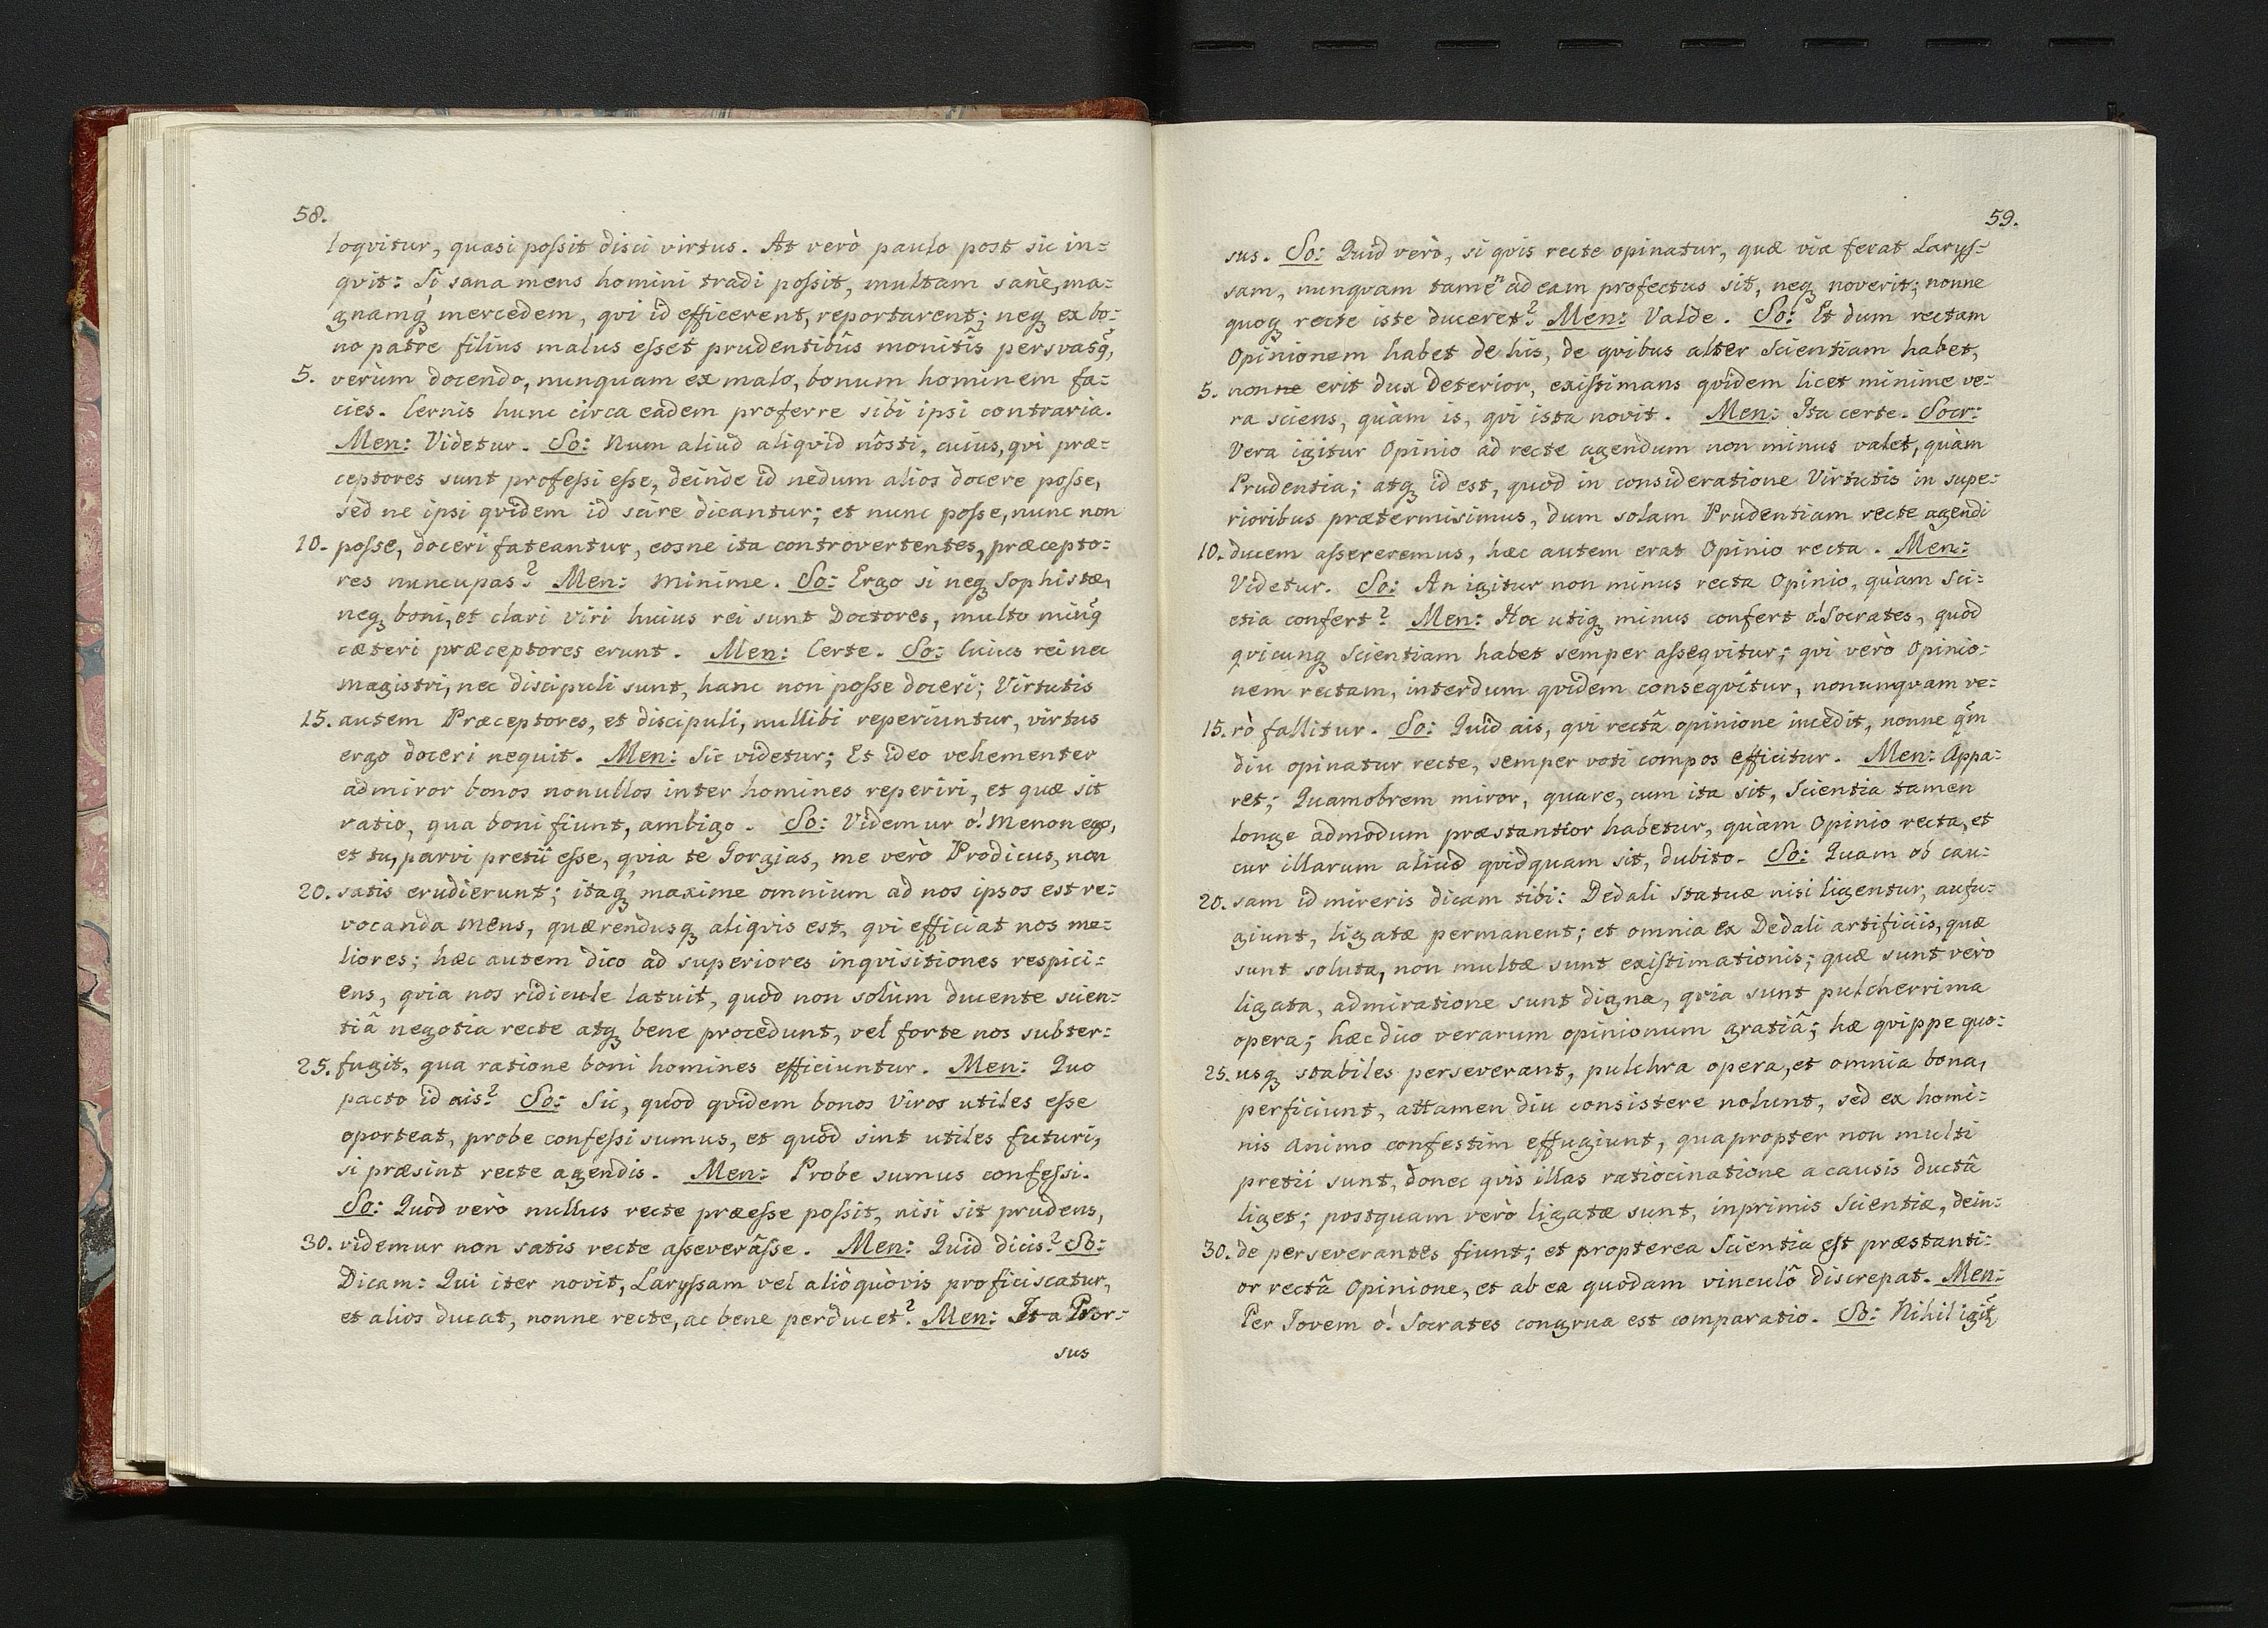 58.
loqvitur, quasi poſsit disci virtus. At verò paulo post sic in=
qvit: Si sana mens homini tradi poſsit, multam sanè, ma=
gnamq́ꝫ mercedem, qvi id efficerent, reportarent; neqꝫ ex bo=
no patre filius malus eſset prudentibus monitis persvasꝯ,
5. verùm docendo, nunquam ex malo, bonum hominem fa=
cies. Cernis hunc circa eadem proferre sibi ipsi contraria.
Men: Videtur. So: Num aliud aliqvid nôsti, cuius, qvi præ=
ceptores sunt profeſsi eſse, deinde id nedum alios docere poſse,
sed ne ipsi qvidem id scire dicantur; et nunc poſse, nunc non
10. poſse, doceri fateantur, eosne ita controvertentes, præcepto=
res nuncupas? Men: Minime. So: Ergo si neqꝫ Sophistæ,
neqꝫ boni, et clari viri huius rei sunt Doctores, multo minꝯ
cæteri præceptores erunt. Men: Certe. So: Cuius rei nec
magistri, nec discipuli sunt, hanc non poſse doceri; Virtutis
15. autem Præceptores, et discipuli, nullibi reperiuntur, virtus
ergo doceri nequit. Men: Sic videtur; Et ideo vehementer
admiror bonos nonullos inter homines reperiri, et quæ sit
ratio, qua boni fiunt, ambigo. So: Videmur o! Menon ego,
et tu, parvi pretii eſse, qvia te Gorgias, me verò Prodicus, non
20. satis erudierunt; itaqꝫ maxime omnium ad nos ipsos est re=
vocanda mens, quærendusqꝫ aliqvis est, qvi efficiat nos me=
liores; hæc autem dico ad superiores inqvisitiones respici=
ens, qvia nos ridicule latuit, quod non solùm ducente scien=
tiâ negotia recte atqꝫ bene procedunt, vel forte nos subter=
25. fugit, qua ratione boni homines efficiuntur. Men: Quo
pacto id ais? So: Sic, quod qvidem bonos Viros utiles eſse
oporteat, probe confeſsi sumus, et quòd sint utiles futuri,
si præsint recte agendis. Men: Probe sumus confeſsi.
So: Quod verò nullus recte præeſse poſsit, nisi sit prudens,
30. videmur non satis recte aſseverâſse. Men: Quid dicis? So:
Dicam: Qui iter novit, Laryſsam vel aliòquòvis proficiscatur,
et alios ducat, nonne recte, ac bene perducet? Men: Ita Pror=
sus
59.
sus. So: Quid verò, si qvis recte opinatur, quæ via ferat Laryſ=
sam, nunqvam tamen ad eam profectus sit, neqꝫ noverit; nonne
quoqꝫ recte iste duceret? Men: Valde. So: Et dum rectam
Opinionem habet de his, de qvibus alter Scientiam habet,
5. nonne erit dux deterior, exiſtimans qvidem licet minime ve=
ra sciens, quàm is, qvi ista novit. Men: Ita certe. Socr:
Vera igitur Opinio ad recte agendum non minus valet, quàm
Prudentia; atqꝫ id est, quod in consideratione Virtutis in supe=
rioribus prætermisimus, dum solam Prudentiam recte agendi
10. ducem aſsereremus, hæc autem erat Opinio recta. Men:
Videtur. So: An igitur non minus recta Opinio, quàm Sci=
etia confert? Men: Hoc utiqꝫ minus confert o! Socrates, quòd
qvicunqꝫ Scientiam habet semper aſseqvitur; qvi verò Opinio=
nem rectam, interdum qvidem conseqvitur, nonunqvam ve=
15. rò fallitur. So: Quid ais, qvi rectâ opinione incedit, nonne qm̃
diu opinatur recte, semper voti compos efficitur. Men: Appa=
ret; Quamobrem miror, quare, cum ita sit, Scientia tamen
longe admodum præstantior habetur, quàm Opinio recta, et
cur illarum aliud qvidquam sit, dubito. So: Quam ob cau=
20. sam id mireris dicam tibi: Dedali Statuæ nisi ligentur, aufu=
giunt, ligatæ permanent; et omnia ex Dedali artificiis, quæ
sunt soluta, non multæ sunt exiſtimationis; quæ sunt verò
ligata, admiratione sunt digna, qvia sunt pulcherrima
opera; hæc dico verarum opinionum gratiâ; hæ qvippe quo=
25. usqꝫ stabiles perseverant, pulchra opera, et omnia bona,
perficiunt, attamen diu consistere nolunt, sed ex homi=
nis animo confestim effugiunt, quapropter non multi
pretii sunt, donec qvis illas ratiocinatione a causis ductâ
liget; postquam verò ligatæ sunt, inprimis Scientiæ, dein=
30. de perseverantes fiunt; et propterea Scientia eſt præstanti=
or rectâ Opinione, et ab ea quodam vinculô discrepat. Men:
Per Jovem o! Socrates congrua est comparatio. So: Nihil igit̃